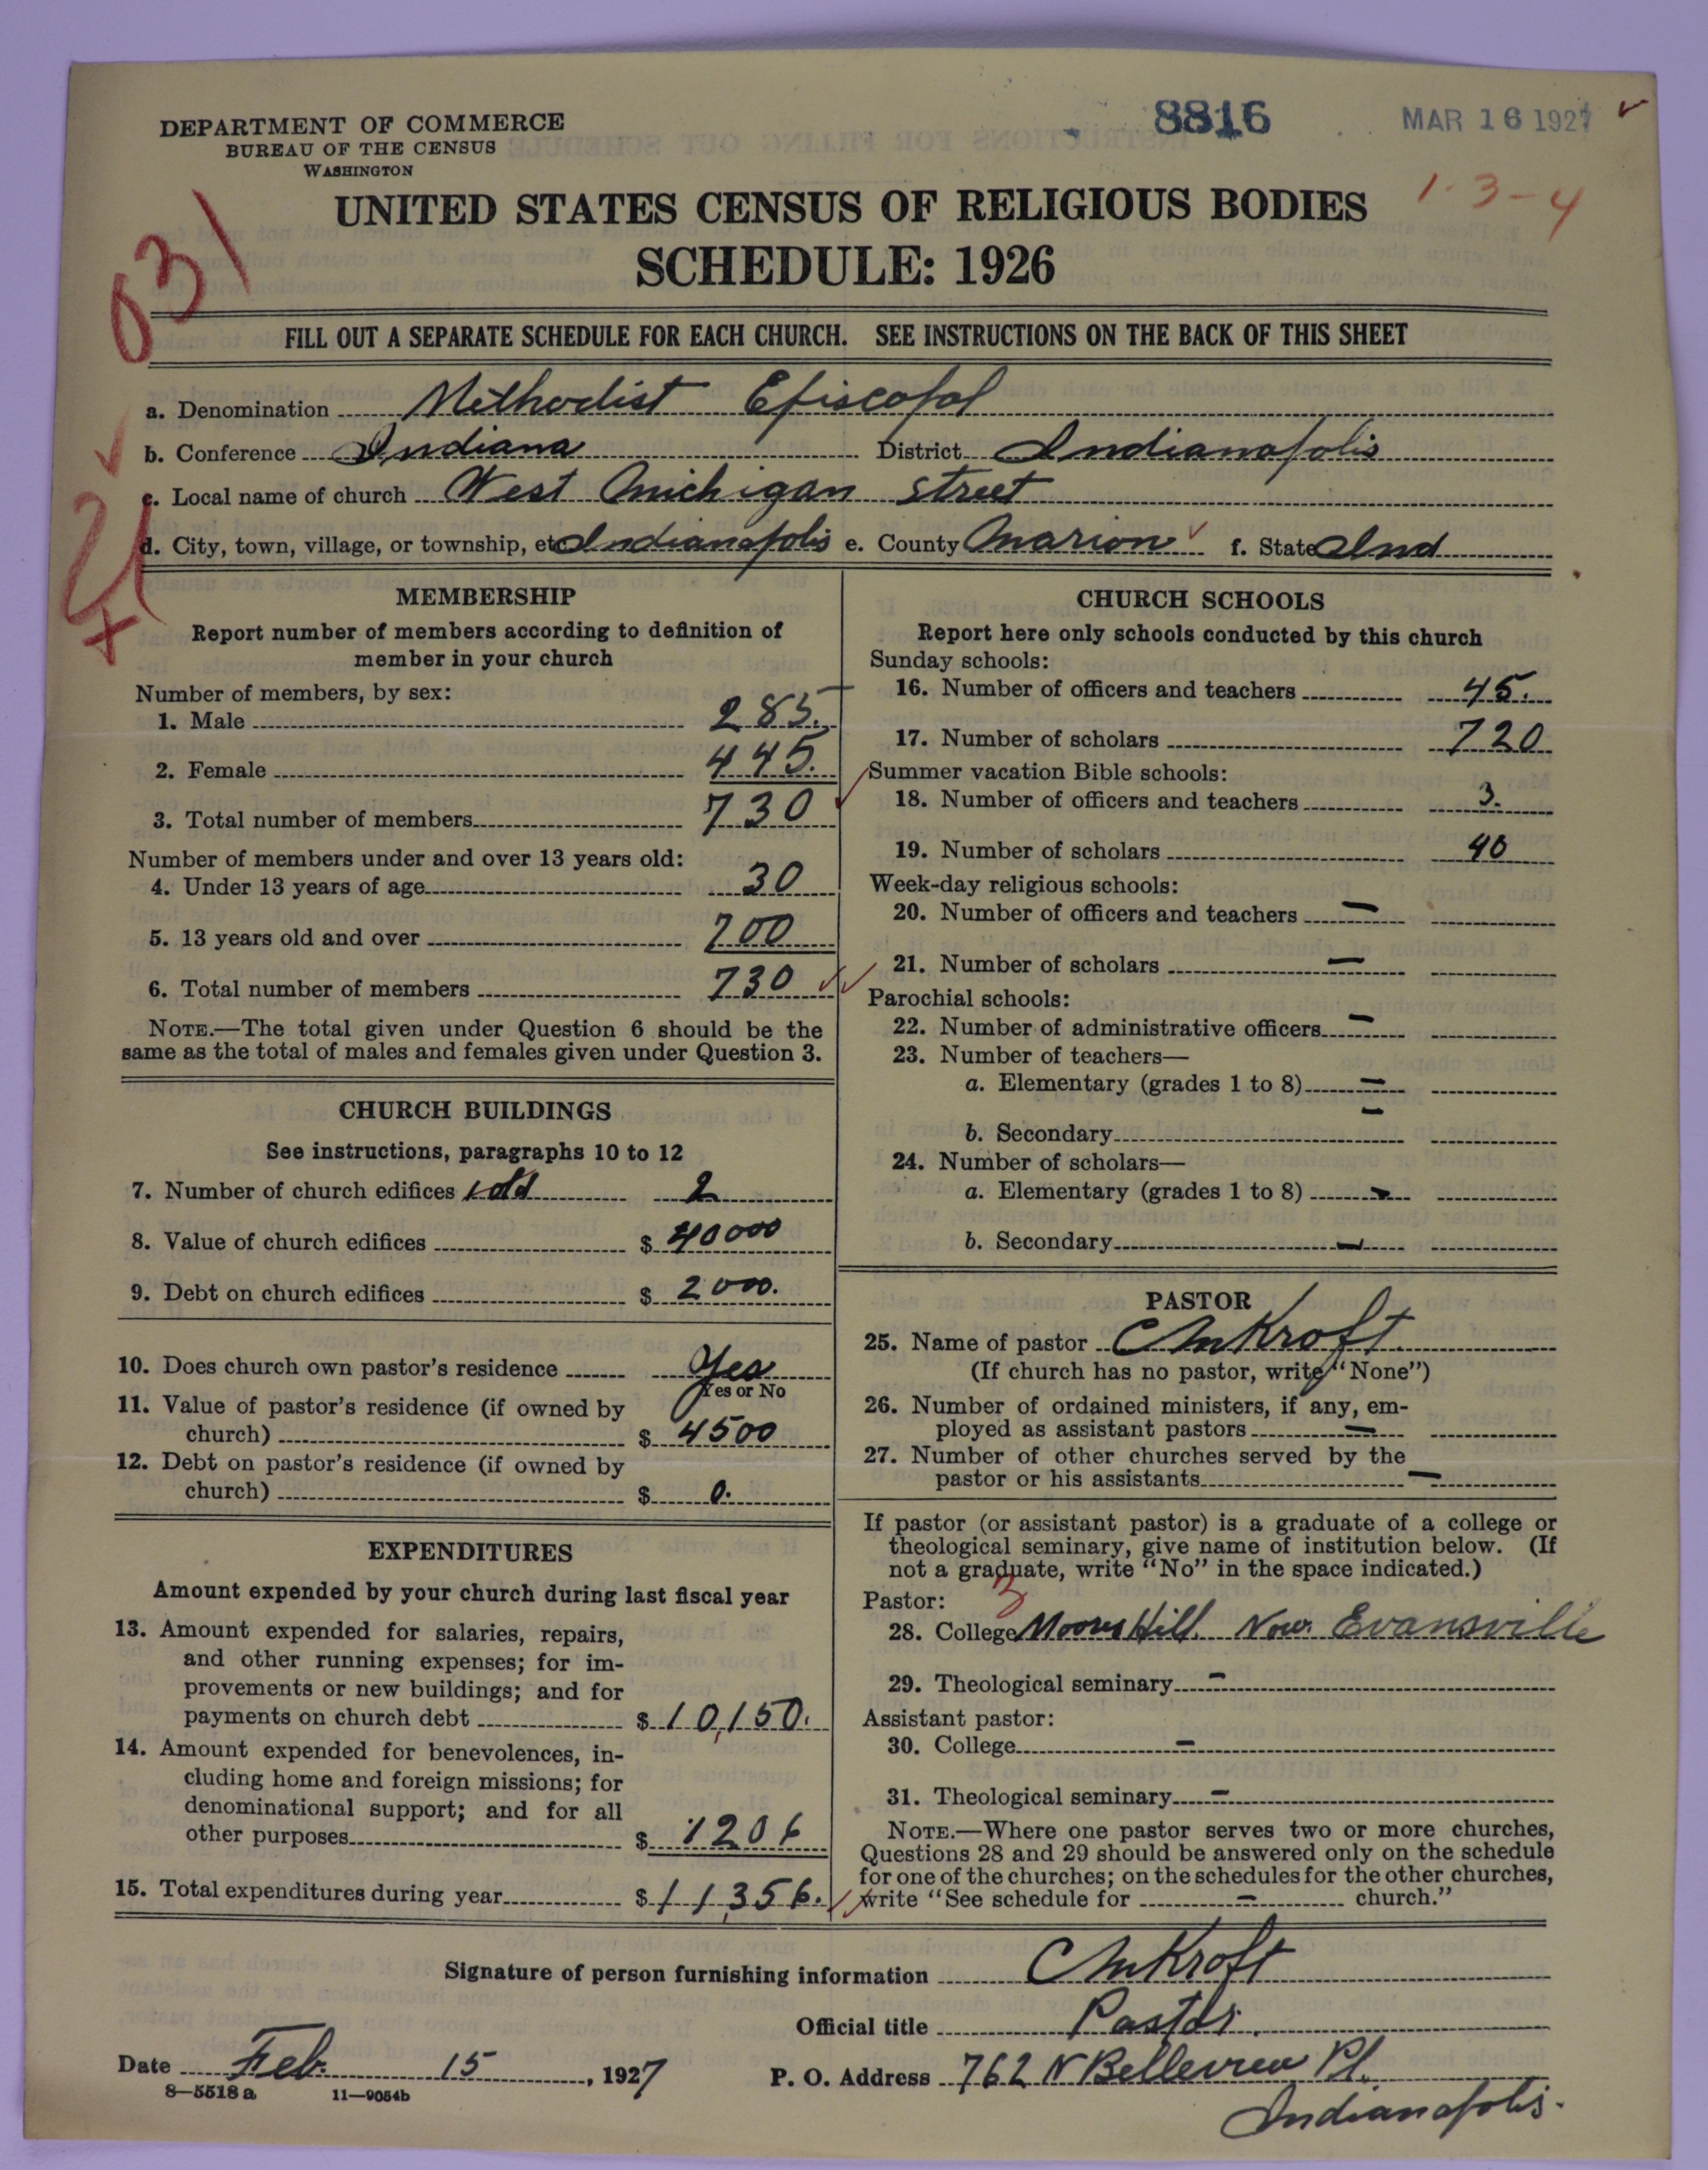 DEPARTMENT OF COMMERCE
BUREAU OF THE CENSUS
WASHINGTON
8816
MAR 16 1927
1-3-4
031
UNITED STATES CENSUS OF RELIGIOUS BODIES
SCHEDULE: 1926
FILL OUT A SEPARATE SCHEDULE FOR EACH CHURCH. SEE INSTRUCTIONS ON THE BACK OF THIS SHEET
a. Denomination Methodist Episcopal
b. Conference Indiana District Indianapolis
c. Local name of church West Michigan Street
d. City, town, village, or township, etc Indianapolis e. County Marion f. State Ind
MEMBERSHIP
Report number of members according to definition of
member in your church
Number of members, by sex:
1. Male 285.
2. Female 445.
3. Total number of members 730
Number of members under and over 13 years old:
4. Under 13 years of age 30
5. 13 years old and over 700
6. Total number of members 730
NOTE.—The total given under Question 6 should be the
same as the total of males and females given under Question 3.
CHURCH BUILDINGS
See instructions, paragraphs 10 to 12
7. Number of church edifices 1 old 2
8. Value of church edifices $ 40000
9. Debt on church edifices $ 2000.
10. Does church own pastor's residence Yes
Yes or No
11. Value of pastor's residence (if owned by
church) $ 4500
12. Debt on pastor's residence (if owned by
church) $ 0.
EXPENDITURES
Amount expended by your church during last fiscal year
13. Amount expended for salaries, repairs,
and other running expenses; for im-
provements or new buildings; and for
payments on church debt $ 10,150.
14. Amount expended for benevolences, in-
cluding home and foreign missions; for
denominational support; and for all
other purposes $ 1206
15. Total expenditures during year $ 11,356.
CHURCH SCHOOLS
Report here only schools conducted by this church
Sunday schools:
16. Number of officers and teachers 45.
17. Number of scholars 720
Summer vacation Bible schools:
18. Number of officers and teachers 3.
19. Number of scholars 40
Week-day religious schools:
20. Number of officers and teachers —
21. Number of scholars —
Parochial schools:
22. Number of administrative officers —
23. Number of teachers—
a. Elementary (grades 1 to 8) —
b. Secondary —
24. Number of scholars—
a. Elementary (grades 1 to 8) —
b. Secondary —
PASTOR
25. Name of pastor C M Kroft
(If church has no pastor, write "None")
26. Number of ordained ministers, if any, em-
ployed as assistant pastors —
27. Number of other churches served by the
pastor or his assistants —
If pastor (or assistant pastor) is a graduate of a college or
theological seminary, give name of institution below. (If
not a graduate, write "No" in the space indicated.)
Pastor:
28. College Moores Hill. Now. Evansville
29. Theological seminary —
Assistant pastor:
30. College —
31. Theological seminary —
NOTE.—Where one pastor serves two or more churches,
Questions 28 and 29 should be answered only on the schedule
for one of the churches; on the schedules for the other churches,
write "See schedule for — church."
Signature of person furnishing information C M Kroft
Official title Pastor.
Date Feb. 15, 1927
P. O. Address 762 N Belleview Pl.
Indianapolis.
8—5518 a 11—9054b